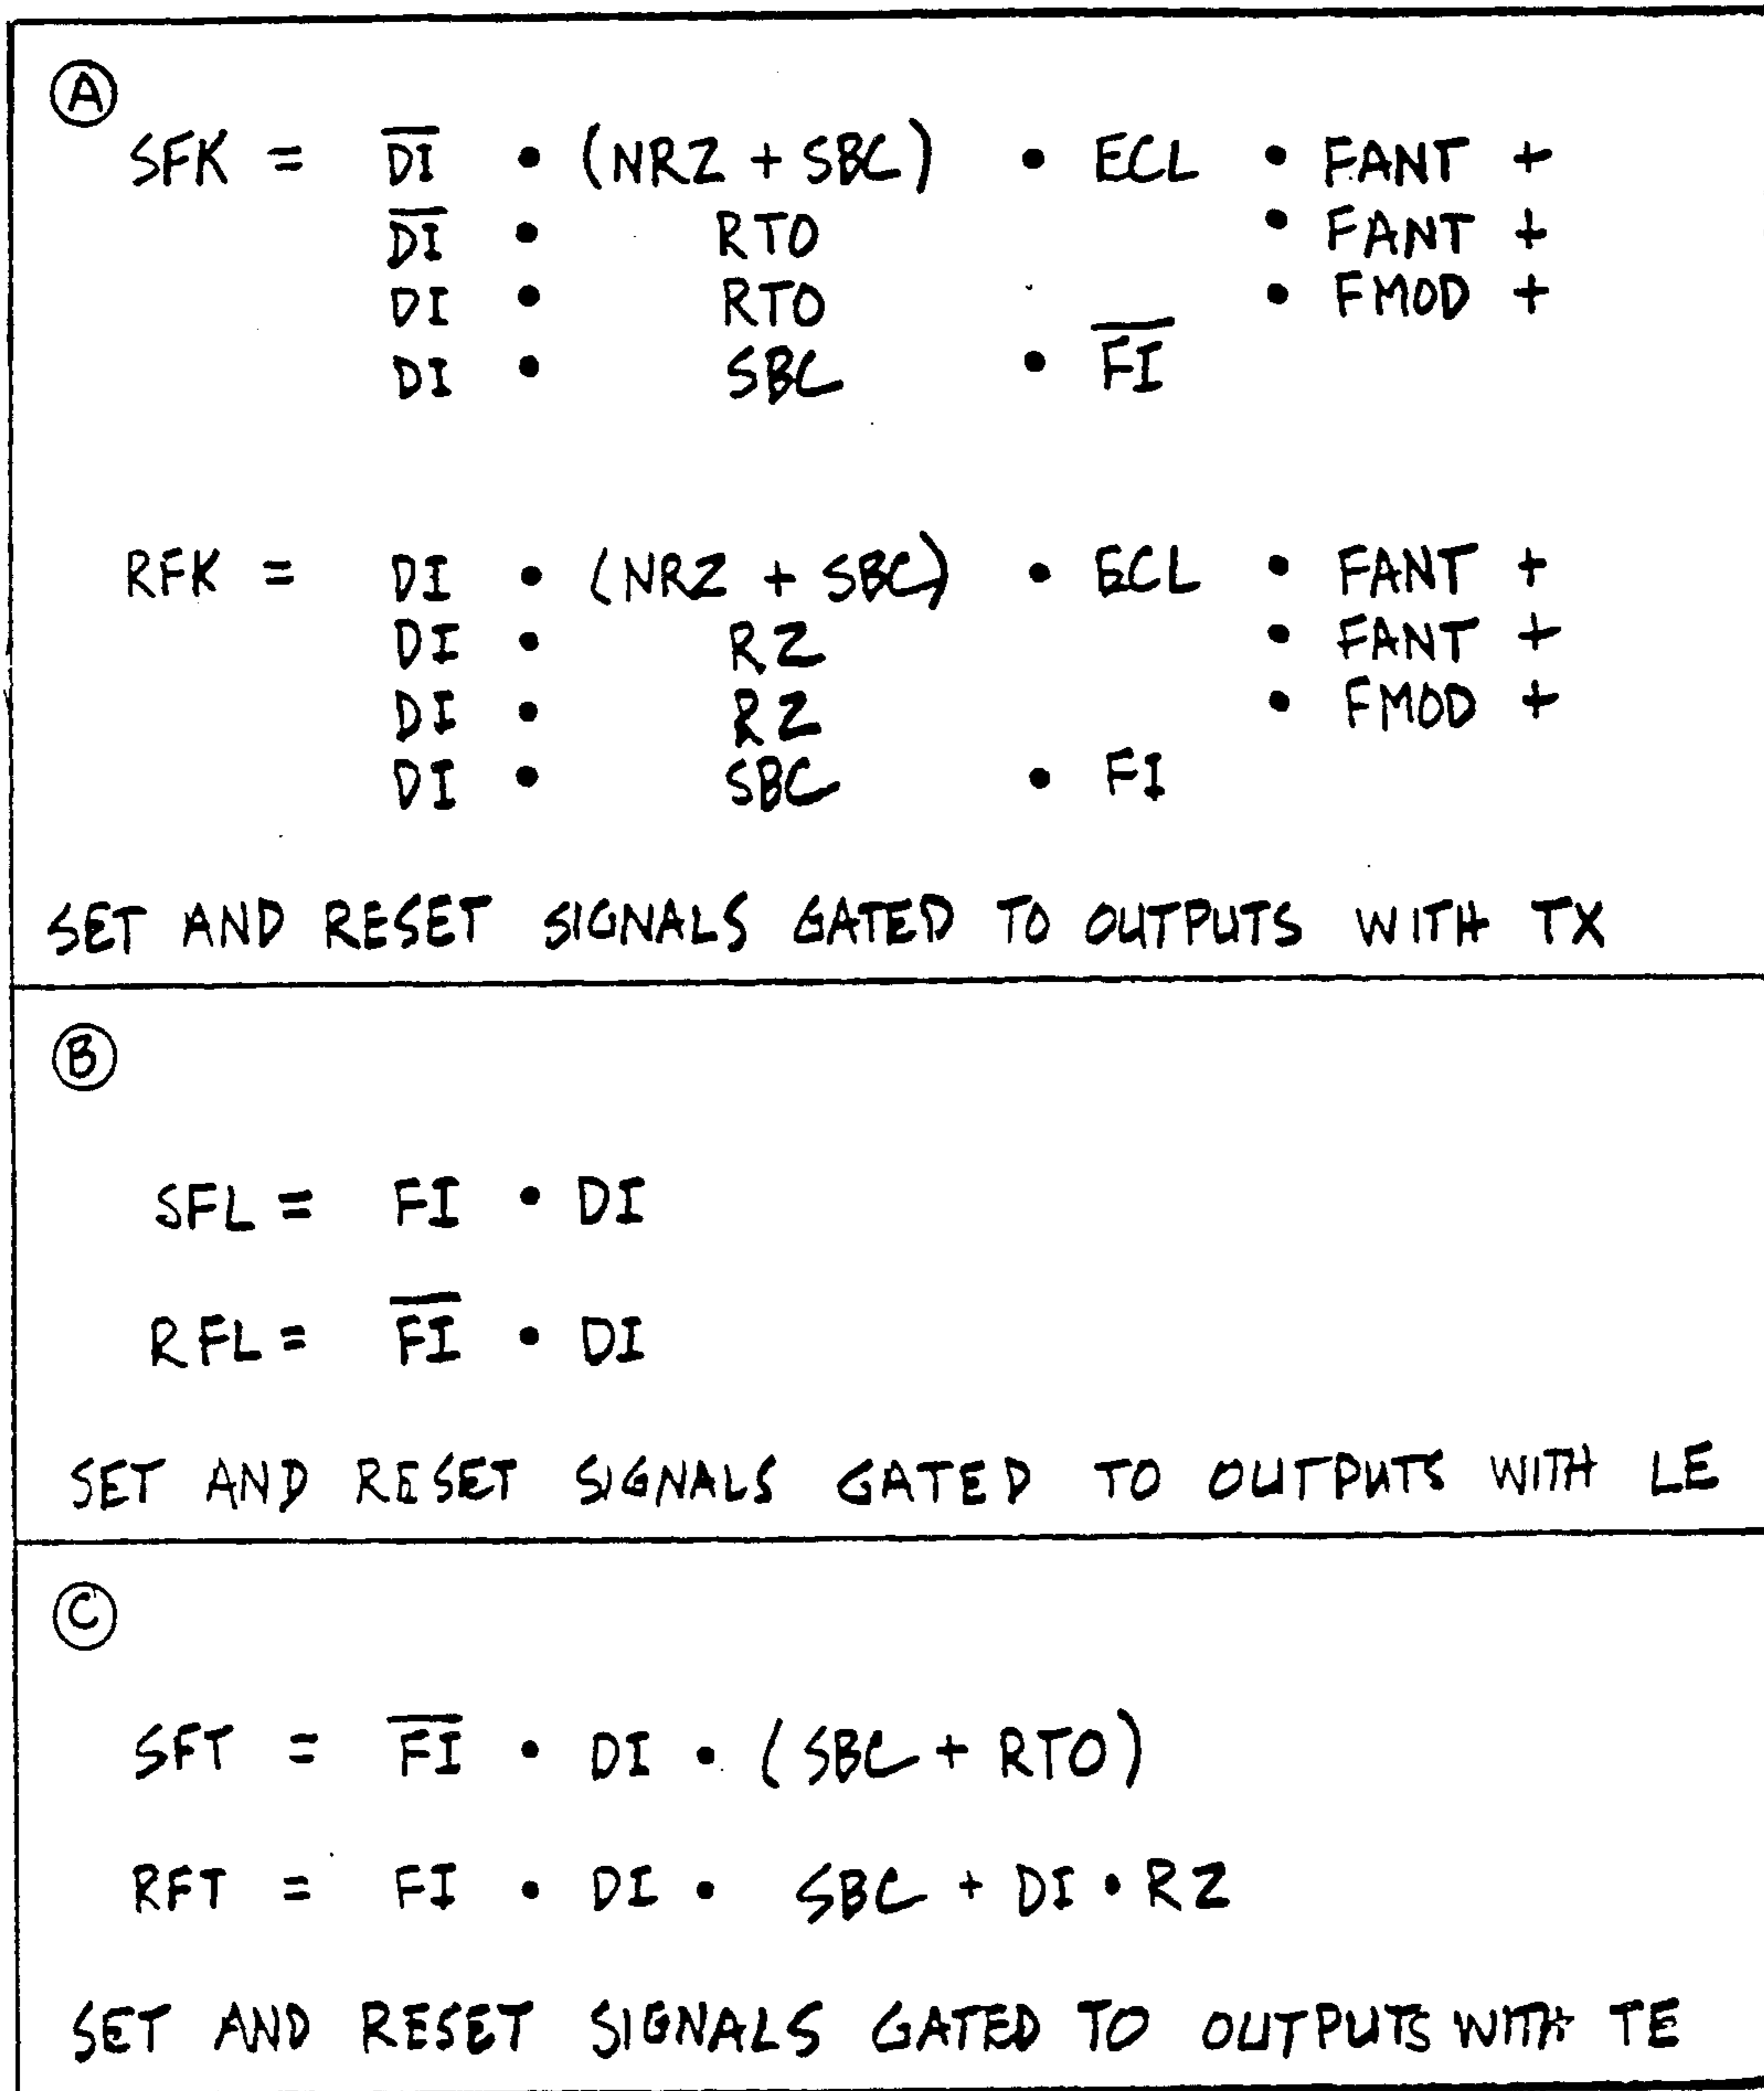 Ⓐ
SFK = D̅I̅ • (NRZ + SBC) • ECL • FANT +
D̅I̅ • RTO • FANT +
DI • RTO • FMOD +
DI • SBC • F̅I̅
RFK = DI • (NRZ + SBC) • ECL • FANT +
DI • RZ • FANT +
DI • RZ • FMOD +
DI • SBC • FI
SET AND RESET SIGNALS GATED TO OUTPUTS WITH TX
Ⓑ
SFL = FI • DI
RFL = F̅I̅ • DI
SET AND RESET SIGNALS GATED TO OUTPUTS WITH LE
Ⓒ
SFT = F̅I̅ • DI • (SBC + RTO)
RFT = FI • DI • SBC + DI • RZ
SET AND RESET SIGNALS GATED TO OUTPUTS WITH TE